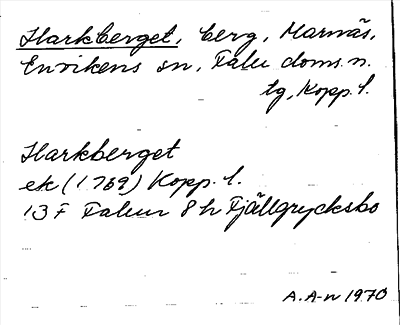 Harkberget, berg, Marnäs,
Envikens sn, Falu doms.n.
tg, Kopp. l.
Harkberget
ek (1769) Kopp. l.
13 F Falun 8 h Fjällgrycksbo
A. A-n 1970